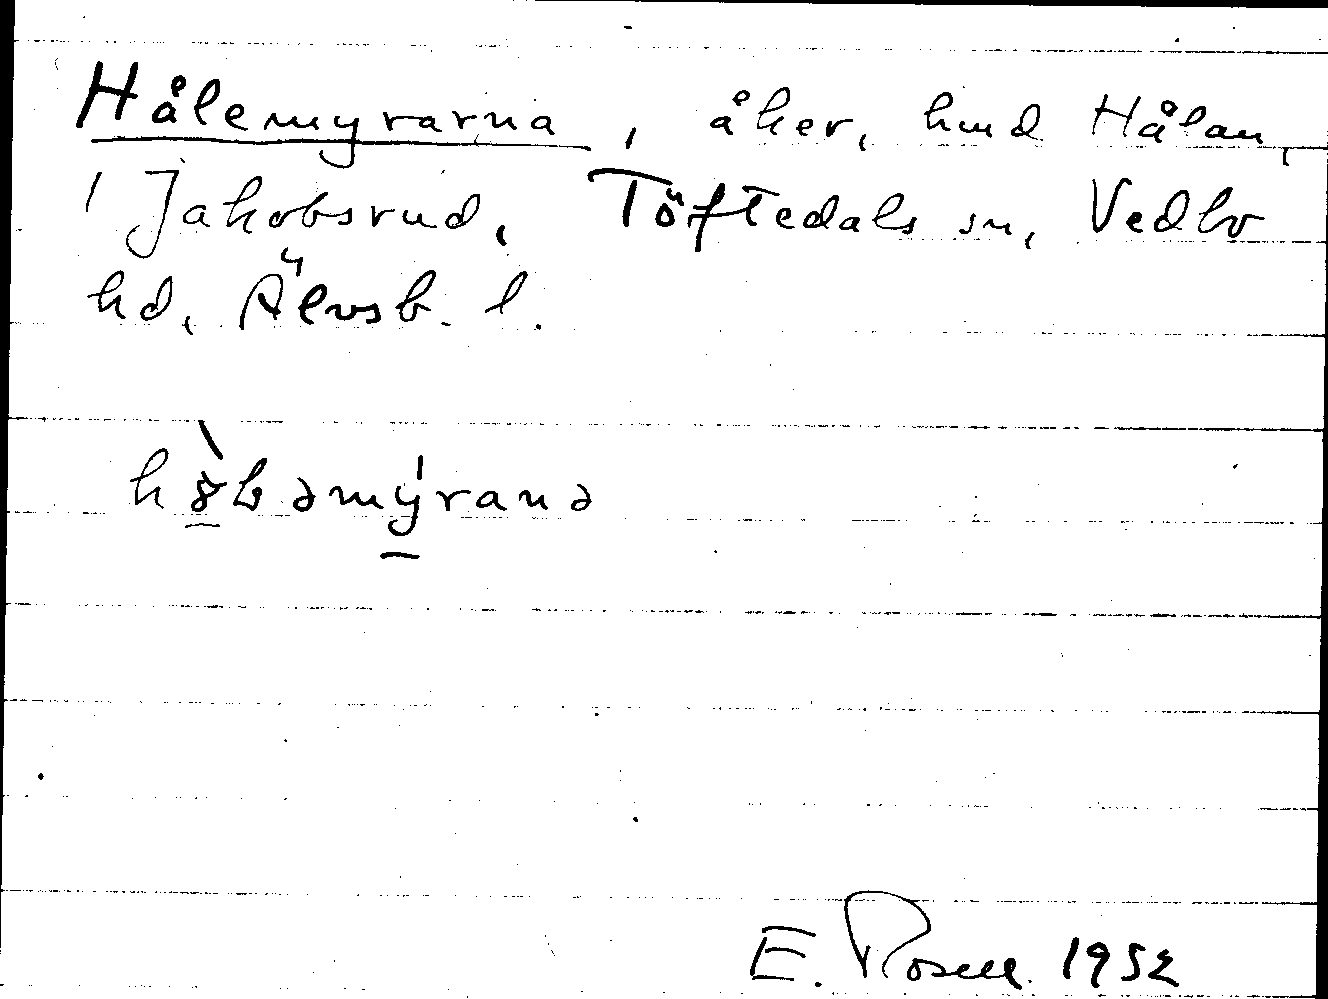 Hålemyrarna, åker, hmd Hålan,
1 Jakobsrud, Töftedals sn, Vedbo
hd, Älvsb. l.
E. Rosell 1952